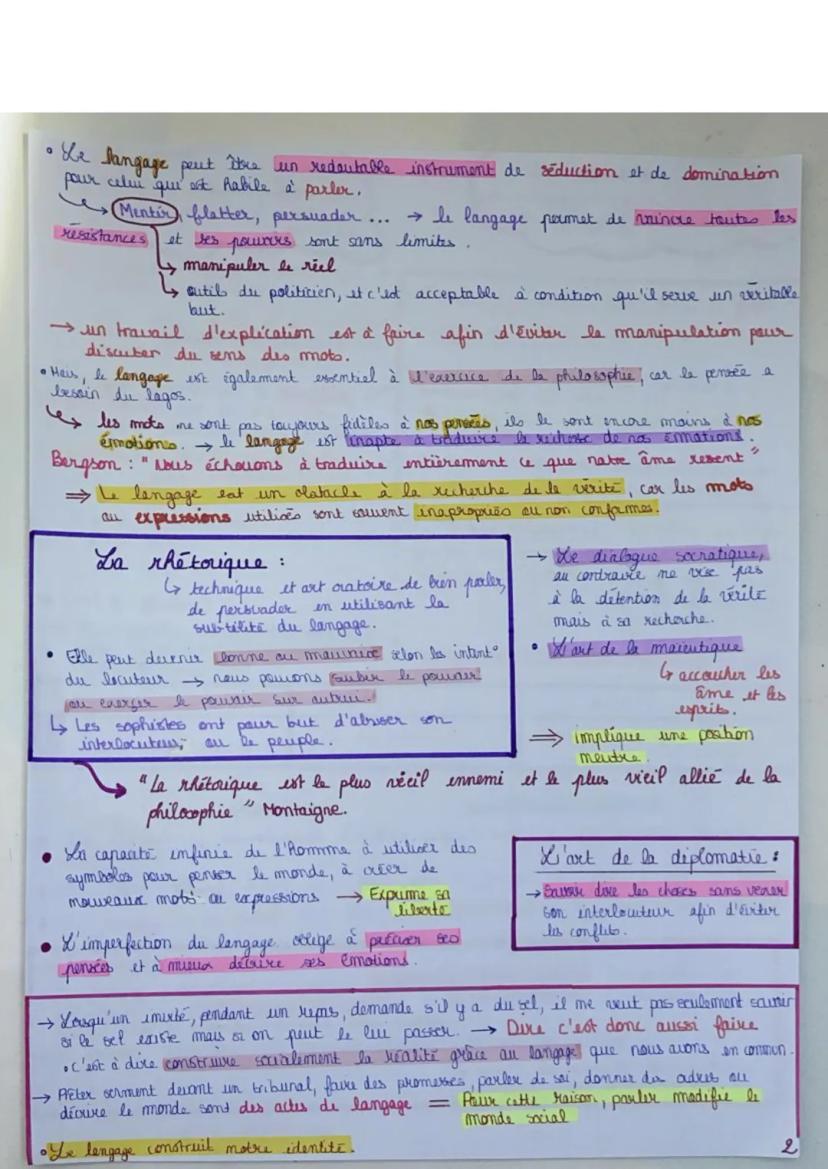 • Le langage peut être un redoutable instrument de séduction et de domination
pour celui qui est habile à parler.
↳ Mentir, flatter, persuader ... → le langage permet de vaincre toutes les
résistances et ses pouvoirs sont sans limites.
↳ manipuler le réel
↳ outils du politicien, et c'est acceptable à condition qu'il serve un véritable
but.
→ un travail d'explication est à faire afin d'éviter la manipulation pour
discuter du sens des mots.
• Mais, le langage est également essentiel à l'exercice de la philosophie, car la pensée a
besoin du logos.
↳ les mots ne sont pas toujours fidèles à nos pensées, ils le sont encore moins à nos
émotions. → le langage est inapte à traduire la richesse de nos émotions.
Bergson : "Nous échouons à traduire entièrement ce que notre âme resent"
⇒ Le langage est un obstacle à la recherche de la vérité, car les mots
ou expressions utilisés sont souvent inapropriés ou non conformes.
La rhétorique :
↳ technique et art oratoire de bien parler,
de persuader en utilisant la
subtilité du langage.
• Elle peut devenir bonne ou mauvaise selon les intent°
du locuteur → nous pouvons subir le pouvoir
ou exercer le pouvoir sur autrui.
↳ Les sophistes ont pour but d'abuser son
interlocuteur, ou le peuple.
→ Le dialogue socratique,
au contraire ne vise pas
à la détention de la vérité
mais à sa recherche.
• L'art de la maïeutique
↳ accoucher les
âme et les
esprits.
⇒ implique une position
neutre.
"La rhétorique est le plus vieil ennemi et le plus vieil allié de la
philosophie" Montaigne.
• La capacité infinie de l'Homme à utiliser des
symboles pour penser le monde, à créer de
nouveaux mots ou expressions → Exprime sa
liberté
• L'imperfection du langage oblige à préciser ses
pensées et à mieux décrire ses émotions.
L'art de la diplomatie :
→ Savoir dire les choses sans vexer
son interlocuteur afin d'éviter
les conflits.
→ Lorsqu'un invité, pendant un repas, demande s'il y a du sel, il ne veut pas seulement savoir
si le sel existe mais si on peut le lui passer. → Dire c'est donc aussi faire
• c'est à dire construire socialement la réalité grâce au langage que nous avons en commun.
→ Prêter serment devant un tribunal, faire des promesses, parler de soi, donner des ordres ou
décrire le monde sont des actes de langage = Pour cette raison, parler modifie le
monde social
• Le langage construit notre identité.
2